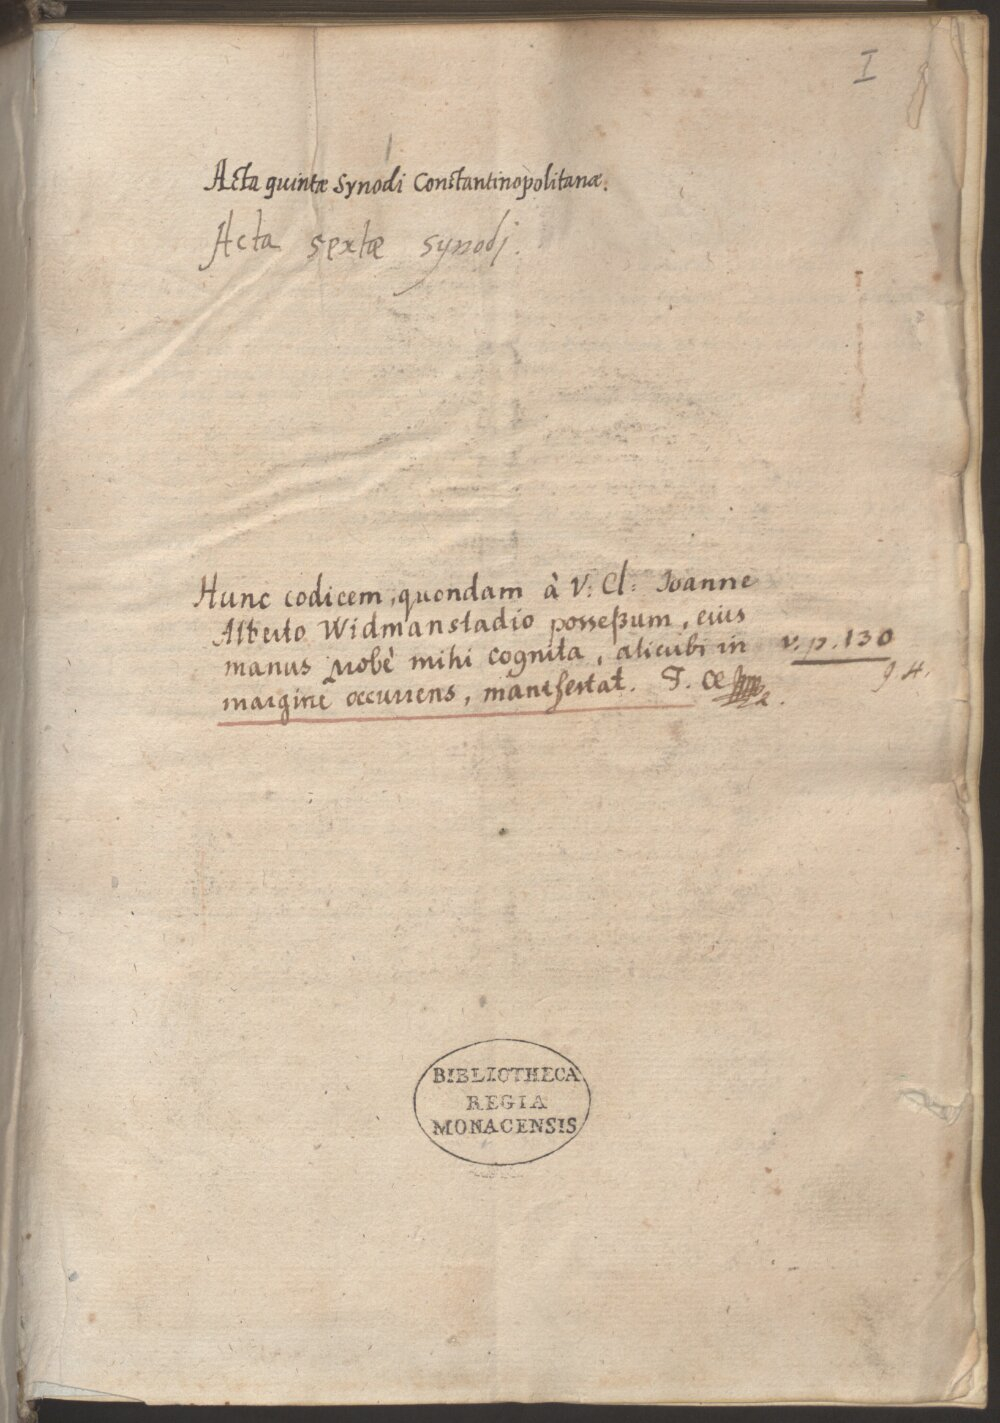 I
Acta quintæ Synodi Constantinopolitanæ.
Acta sextæ synodi.
Hunc codicem, quondam à V: Cl: Ioanne
Alberto Widmanstadio posseßum, eius
manus probè mihi cognita, alicubi in v. p. 130
margine occurrens, manifestat. F.
BIBLIOTHECA
REGIA
MONACENSIS